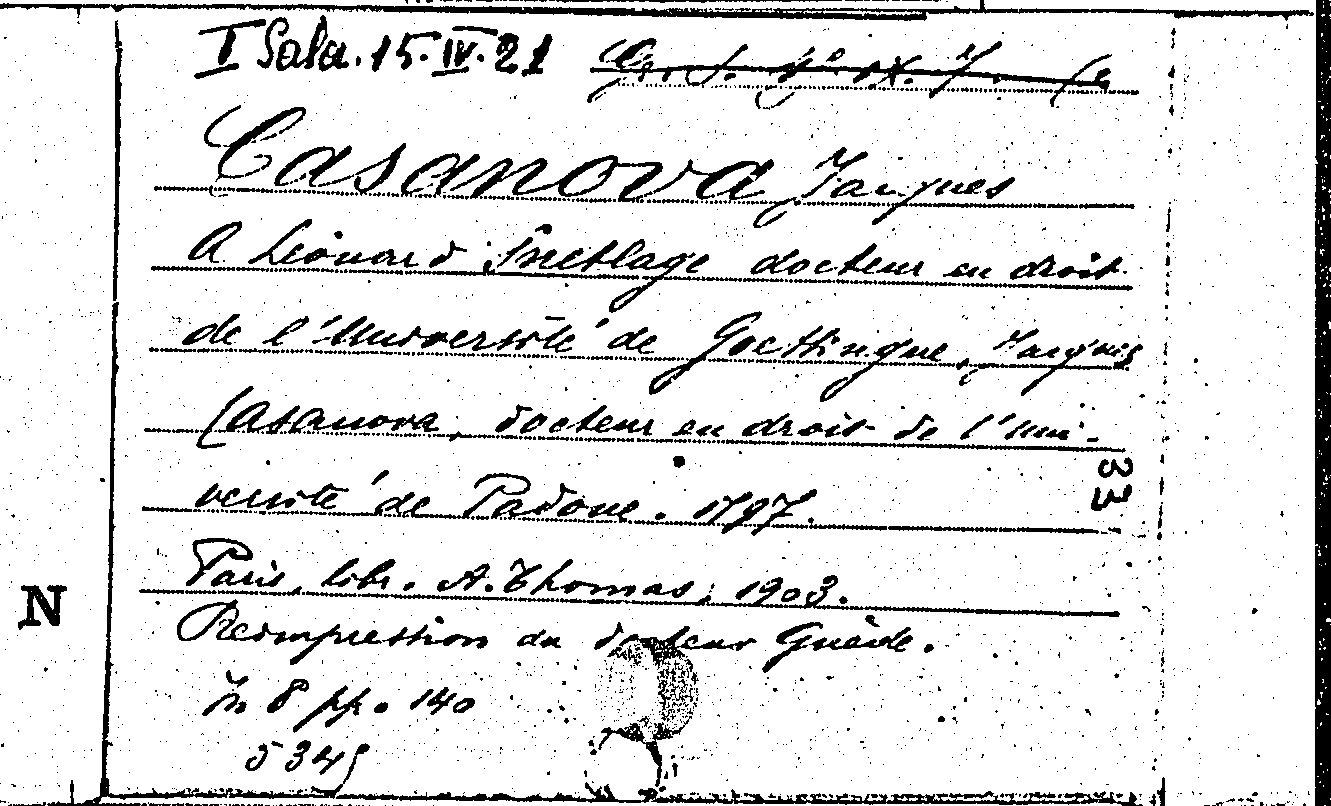 I Sala. 15. IV. 21
Casanova Jacques
A Léonard Snetlage docteur en droit
de l'Université de Goettingue, Jacques
Casanova, docteur en droit de l'Uni-
versité de Padoue. 1797.
33
Paris, libr. A. Thomas, 1903.
N
Reimpression du docteur Guède.
In 8 pp. 140
5345